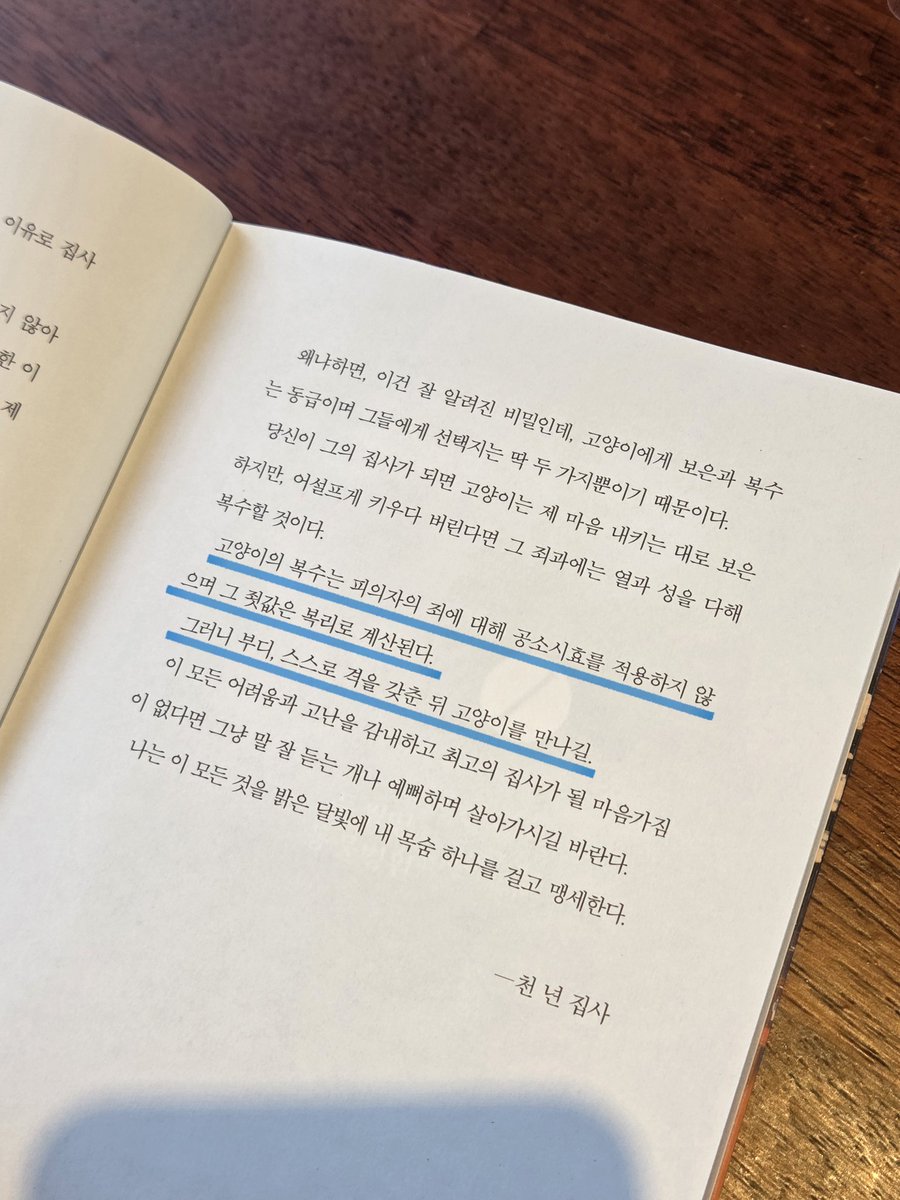 이유로 집사
지 않아
한 이
제
왜냐하면, 이건 잘 알려진 비밀인데, 고양이에게 보은과 복수
는 동급이며 그들에게 선택지는 딱 두 가지뿐이기 때문이다.
당신이 그의 집사가 되면 고양이는 제 마음 내키는 대로 보은
하지만, 어설프게 키우다 버린다면 그 죄과에는 열과 성을 다해
복수할 것이다.
고양이의 복수는 피의자의 죄에 대해 공소시효를 적용하지 않
으며 그 죗값은 복리로 계산된다.
그러니 부디, 스스로 격을 갖춘 뒤 고양이를 만나길.
이 모든 어려움과 고난을 감내하고 최고의 집사가 될 마음가짐
이 없다면 그냥 말 잘 듣는 개나 예뻐하며 살아가시길 바란다.
나는 이 모든 것을 밝은 달빛에 내 목숨 하나를 걸고 맹세한다.
—천 년 집사